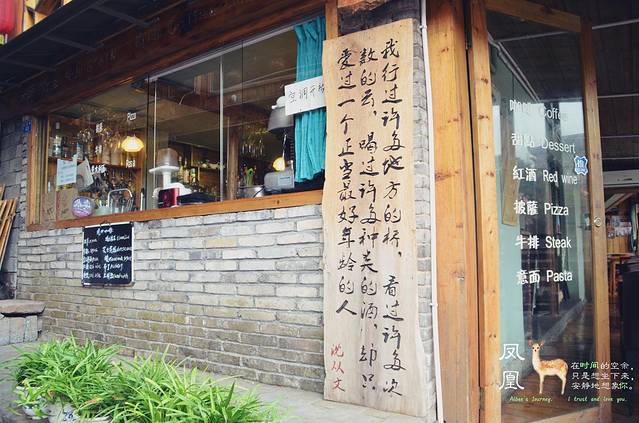 空调开放
我行过许多地方的桥，看过许多次
数的云，喝过许多种类的酒，却只
爱过一个正当最好年龄的人
沈从文
咖啡 Coffee
甜點 Dessert
紅酒 Red wine
披薩 Pizza
牛排 Steak
意面 Pasta
凤凰
在时间的空余，
只是想坐下来，
安静地想象你。
I trust and love you.